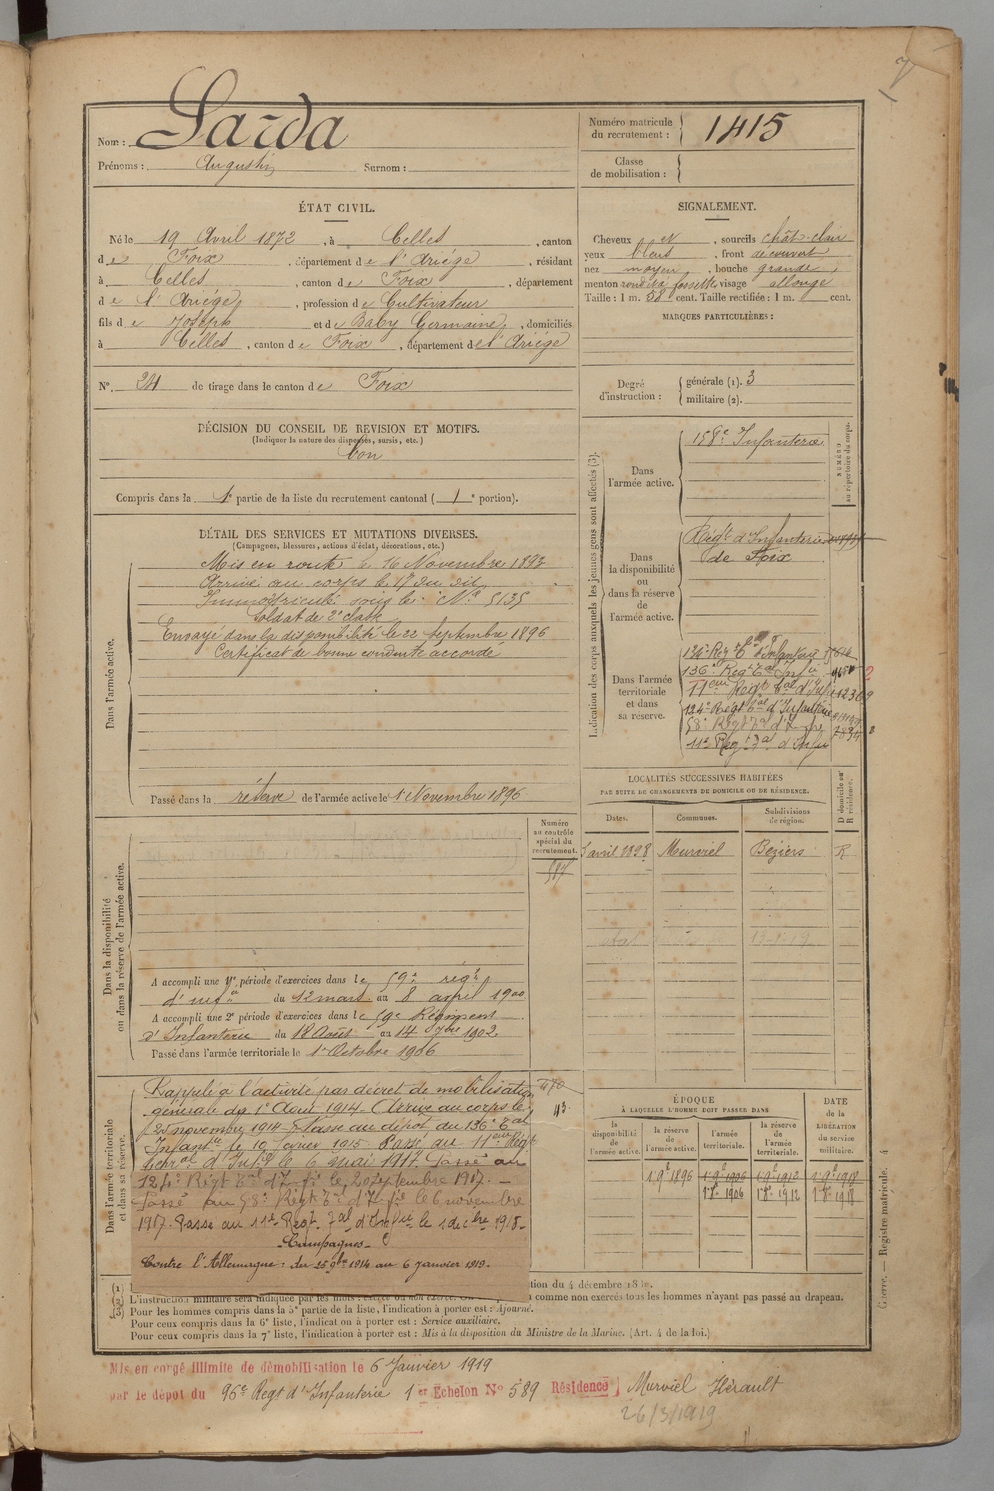 Nom : Sarda
Prénoms : Augustin Surnom :
Numéro matricule du recrutement : 1415
Classe de mobilisation :
ÉTAT CIVIL.
Né le 19 Avril 1872, à Celles, canton
de Foix, département de l'Ariége, résidant
à Celles, canton de Foix, département
de l'Ariége, profession de Cultivateur
fils de Joseph et de Baby Germaine, domiciliés
à Celles, canton de Foix, département de l'Ariége
N° 24 de tirage dans le canton de Foix
SIGNALEMENT.
Cheveux et, sourcils chât-clair
yeux bleus, front découvert
nez moyen, bouche grande,
menton rond à fossette, visage allongé
Taille : 1 m. 58 cent. Taille rectifiée : 1 m. cent.
MARQUES PARTICULIÈRES :
Degré d'instruction : générale (1). 3
militaire (2).
DÉCISION DU CONSEIL DE REVISION ET MOTIFS.
(Indiquer la nature des dispenses, sursis, etc.)
bon
Compris dans la 1e partie de la liste du recrutement cantonal (1e portion).
DÉTAIL DES SERVICES ET MUTATIONS DIVERSES.
(Campagnes, blessures, actions d'éclat, décorations, etc.)
Dans l'armée active.
Mis en route le 16 Novembre 1893
Arrivé au corps le 17 du dit
Immatriculé sous le N° 5135
Soldat de 2e classe
Envoyé dans la disponibilité le 22 Septembre 1896
Certificat de bonne conduite accordé
Passé dans la réserve de l'armée active le 1 Novembre 1896
Indication des corps auxquels les jeunes gens sont affectés (3).
NUMÉRO au répertoire du corps.
Dans l'armée active.
158e Infanterie
Dans la disponibilité ou dans la réserve de l'armée active.
Régt d'Infanterie
de Foix
Dans l'armée territoriale et dans sa réserve.
136e Regt Tal Infie
11eme Regt Tal d'Infie 12369
124e Regt Tal d'Infanterie
58e Regt Tal d'Infie
11e Regt Tal d'Infie
LOCALITÉS SUCCESSIVES HABITÉES
PAR SUITE DE CHANGEMENTS DE DOMICILE OU DE RÉSIDENCE.
Dates. Communes. Subdivisions de région. D domicile ou R résidence.
5 avril 1898 Murviel Béziers R
Numéro au contrôle spécial du recrutement.
Dans la disponibilité ou dans la réserve de l'armée active.
A accompli une 1re période d'exercices dans le 59e régt
d'infie du 12 mars au 8 avril 1900
A accompli une 2e période d'exercices dans le 59e Régiment
d'Infanterie du 18 Août au 14 7bre 1902
Passé dans l'armée territoriale le 1er Octobre 1906
Dans l'armée territoriale et dans sa réserve.
Rappelé à l'activité par décret de mobilisation
générale du 1er Août 1914. Arrivé au corps le
25 novembre 1914. Passe au dépot du 136e Tal
Infantie le 10 février 1915. Passé au 11eme Regt
territal d'Infie le 6 mai 1917. Passé au
124e Régt Tal d'Infie le 20 septembre 1917. —
Passé au 58e Regt Tal d'Infie le 6 novembre
1917. Passe au 11e Regt Tal d'Infie le 1 décbre 1918.
Campagnes
Contre l'Allemagne : du 25 9bre 1914 au 6 janvier 1919.
ÉPOQUE
À LAQUELLE L'HOMME DOIT PASSER DANS
la disponibilité de l'armée active. la réserve de l'armée active. l'armée territoriale. la réserve de l'armée territoriale.
DATE de la LIBÉRATION du service militaire.
1 9e 1896 1 9e 1906 1 9e 1912 1 9e 1918
1 8e 1906 1 8e 1912 1 8e 1918
(1)
tion du 4 décembre
(2) L'instruction militaire sera indiquée par les mots : exercé ou non exercé. comme non exercés tous les hommes n'ayant pas passé au drapeau.
(3) Pour les hommes compris dans la 5e partie de la liste, l'indication à porter est : Ajourné.
Pour ceux compris dans la 6e liste, l'indication à porter est : Service auxiliaire.
Pour ceux compris dans la 7e liste, l'indication à porter est : Mis à la disposition du Ministre de la Marine. (Art. 4 de la loi.)
Guerre. — Registre matricule. 4
Mis en congé illimité de démobilisation le 6 Janvier 1919
par le dépôt du 96e Regt d'Infanterie 1er Echelon N° 589 Résidence Murviel Hérault
26/3/1919